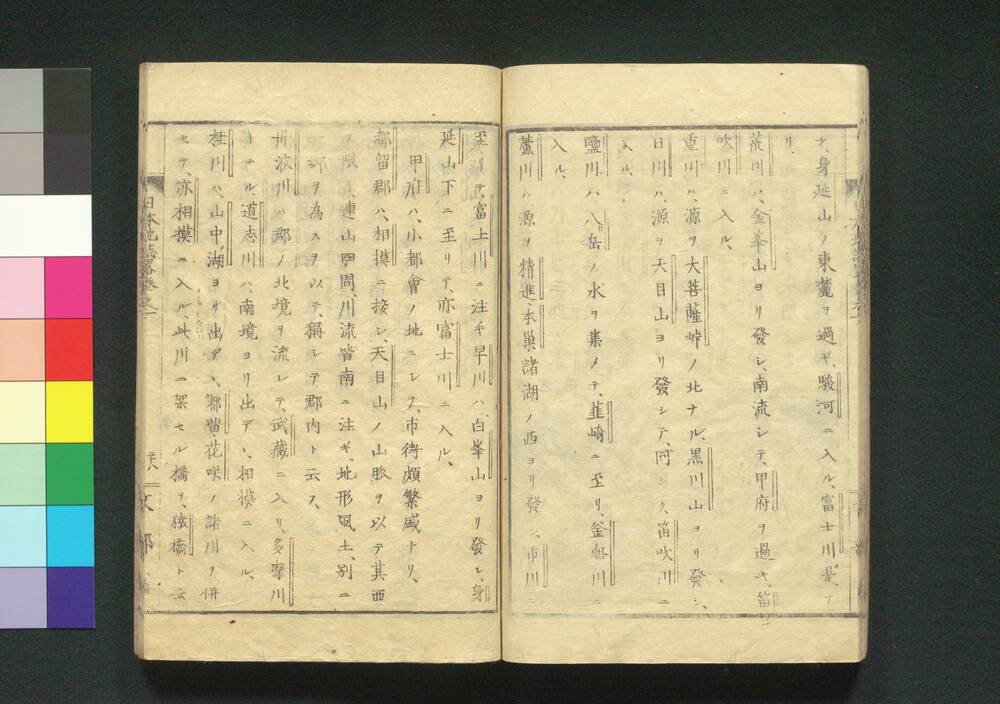 テ、身延山ノ東麓ヲ過ギ、駿河ニ入ル、富士川是ナ
リ、
荒川ハ、金峯山ヨリ發シ、南流シテ、甲府ヲ過ギ、笛
吹川ニ入ル、
重川ハ、源ヲ大菩薩峠ノ北ナル、黒川山ヨリ發シ、
日川ハ、源ヲ天目山ヨリ發シテ、同シク、笛吹川ニ
入ル、
鹽川ハ、八岳ノ水ヲ集メテ、韮崎ニ至リ、釜無川ニ
入ル、
蘆川ハ、源ヲ精進、本巣、諸湖ノ西ヨリ發シ、市川ニ
至リテ、富士川ニ注ギ、早川ハ、白峯山ヨリ發シ、身
延山下ニ至リテ、亦富士川ニ入ル、
甲府ハ、小都會ノ地ニシテ、市街頗繁盛トナリ、
都留郡ハ、相摸ニ接シ、天目山ノ山脈ヲ以テ其西
ヲ限リ、連山四間、川流皆南ニ注ギ、地形風土、別ニ
郷ヲ為スヲ以テ、稱シテ郡内ト云フ、
丹波川ハ、郡ノ北境ヲ流レテ、武藏ニ入リ、多摩川
トナル、道志川ハ、南境ヨリ出デヽ、相摸ニ入ル、
桂川ハ、山中湖ヨリ出デヽ、都留、花咲ノ諸川ヲ併
セテ、亦相摸ニ入ル、此川ニ架セル橋ヲ、猿橋ト云
日本地誌略卷之一
文部